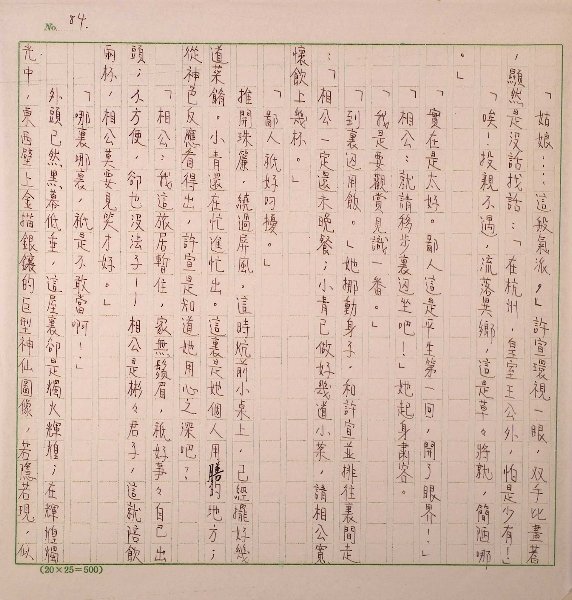 No. 84.
「姑娘……這般氣派。」許宣環視一眼，双手比畫着
，顯然是沒話找話：「在杭洲，皇室王公外，怕是少有！」
「唉！投親不遇，流落異鄉，這是草々將就，簡陋哪
。」
「實在是太好。鄙人這是平生第一回，開了眼界！」
「相公：就請移步裏边坐吧！」她起身肅客。
「我是要觀賞見識一番。」
「到裏边用飯。」她挪動身子，和許宣並排往裏間走
：「相公一定還未晚餐；小青已做好幾道小菜，請相公寬
懷飲上幾杯。」
「鄙人祇好叨擾。」
推開珠簾，繞過屏風，這時炕前小桌上，已經擺好幾
道菜餚。小青還在忙進忙出。這裏是她個人用膳的地方；
從神色反應看得出，許宣是知道她用心之深吧？
「相公：我這旅居暫住，家無鬚眉，祇好事々自己出
頭；不方便，卻也沒法子——相公是彬々君子，這就陪飲
兩杯，相公莫要見笑才好。」
「哪裏哪裏，祇是不敢當啊！」
外頭已然黑幕低垂，這屋裏卻是燭火輝煌；在輝煌燭
光中，東西壁上金描銀鑲的巨型神仙圖像，若隱若現，似
(20×25=500)